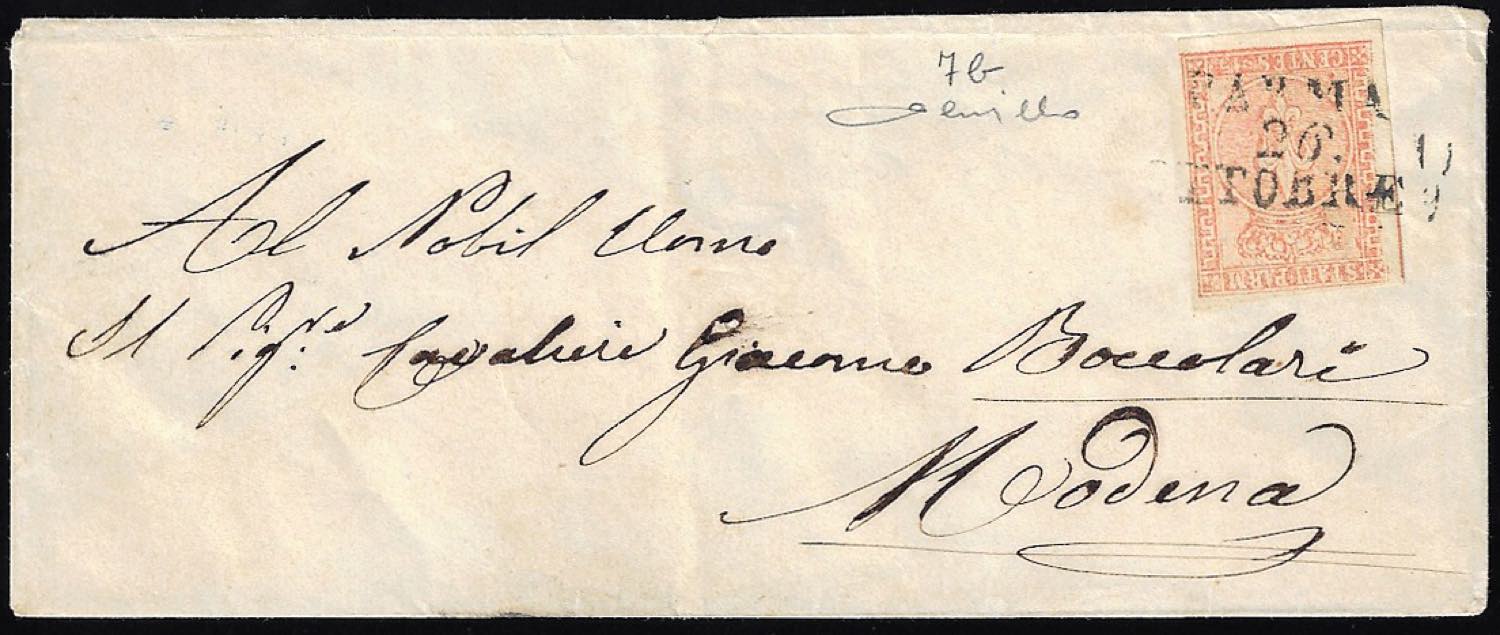 7b
CENTES
PARMA
26.
OTTOBRE
STATI PARM
Al Nobil Uomo
Il Sigre. Cavaliere Giacomo Boccolari
Modena